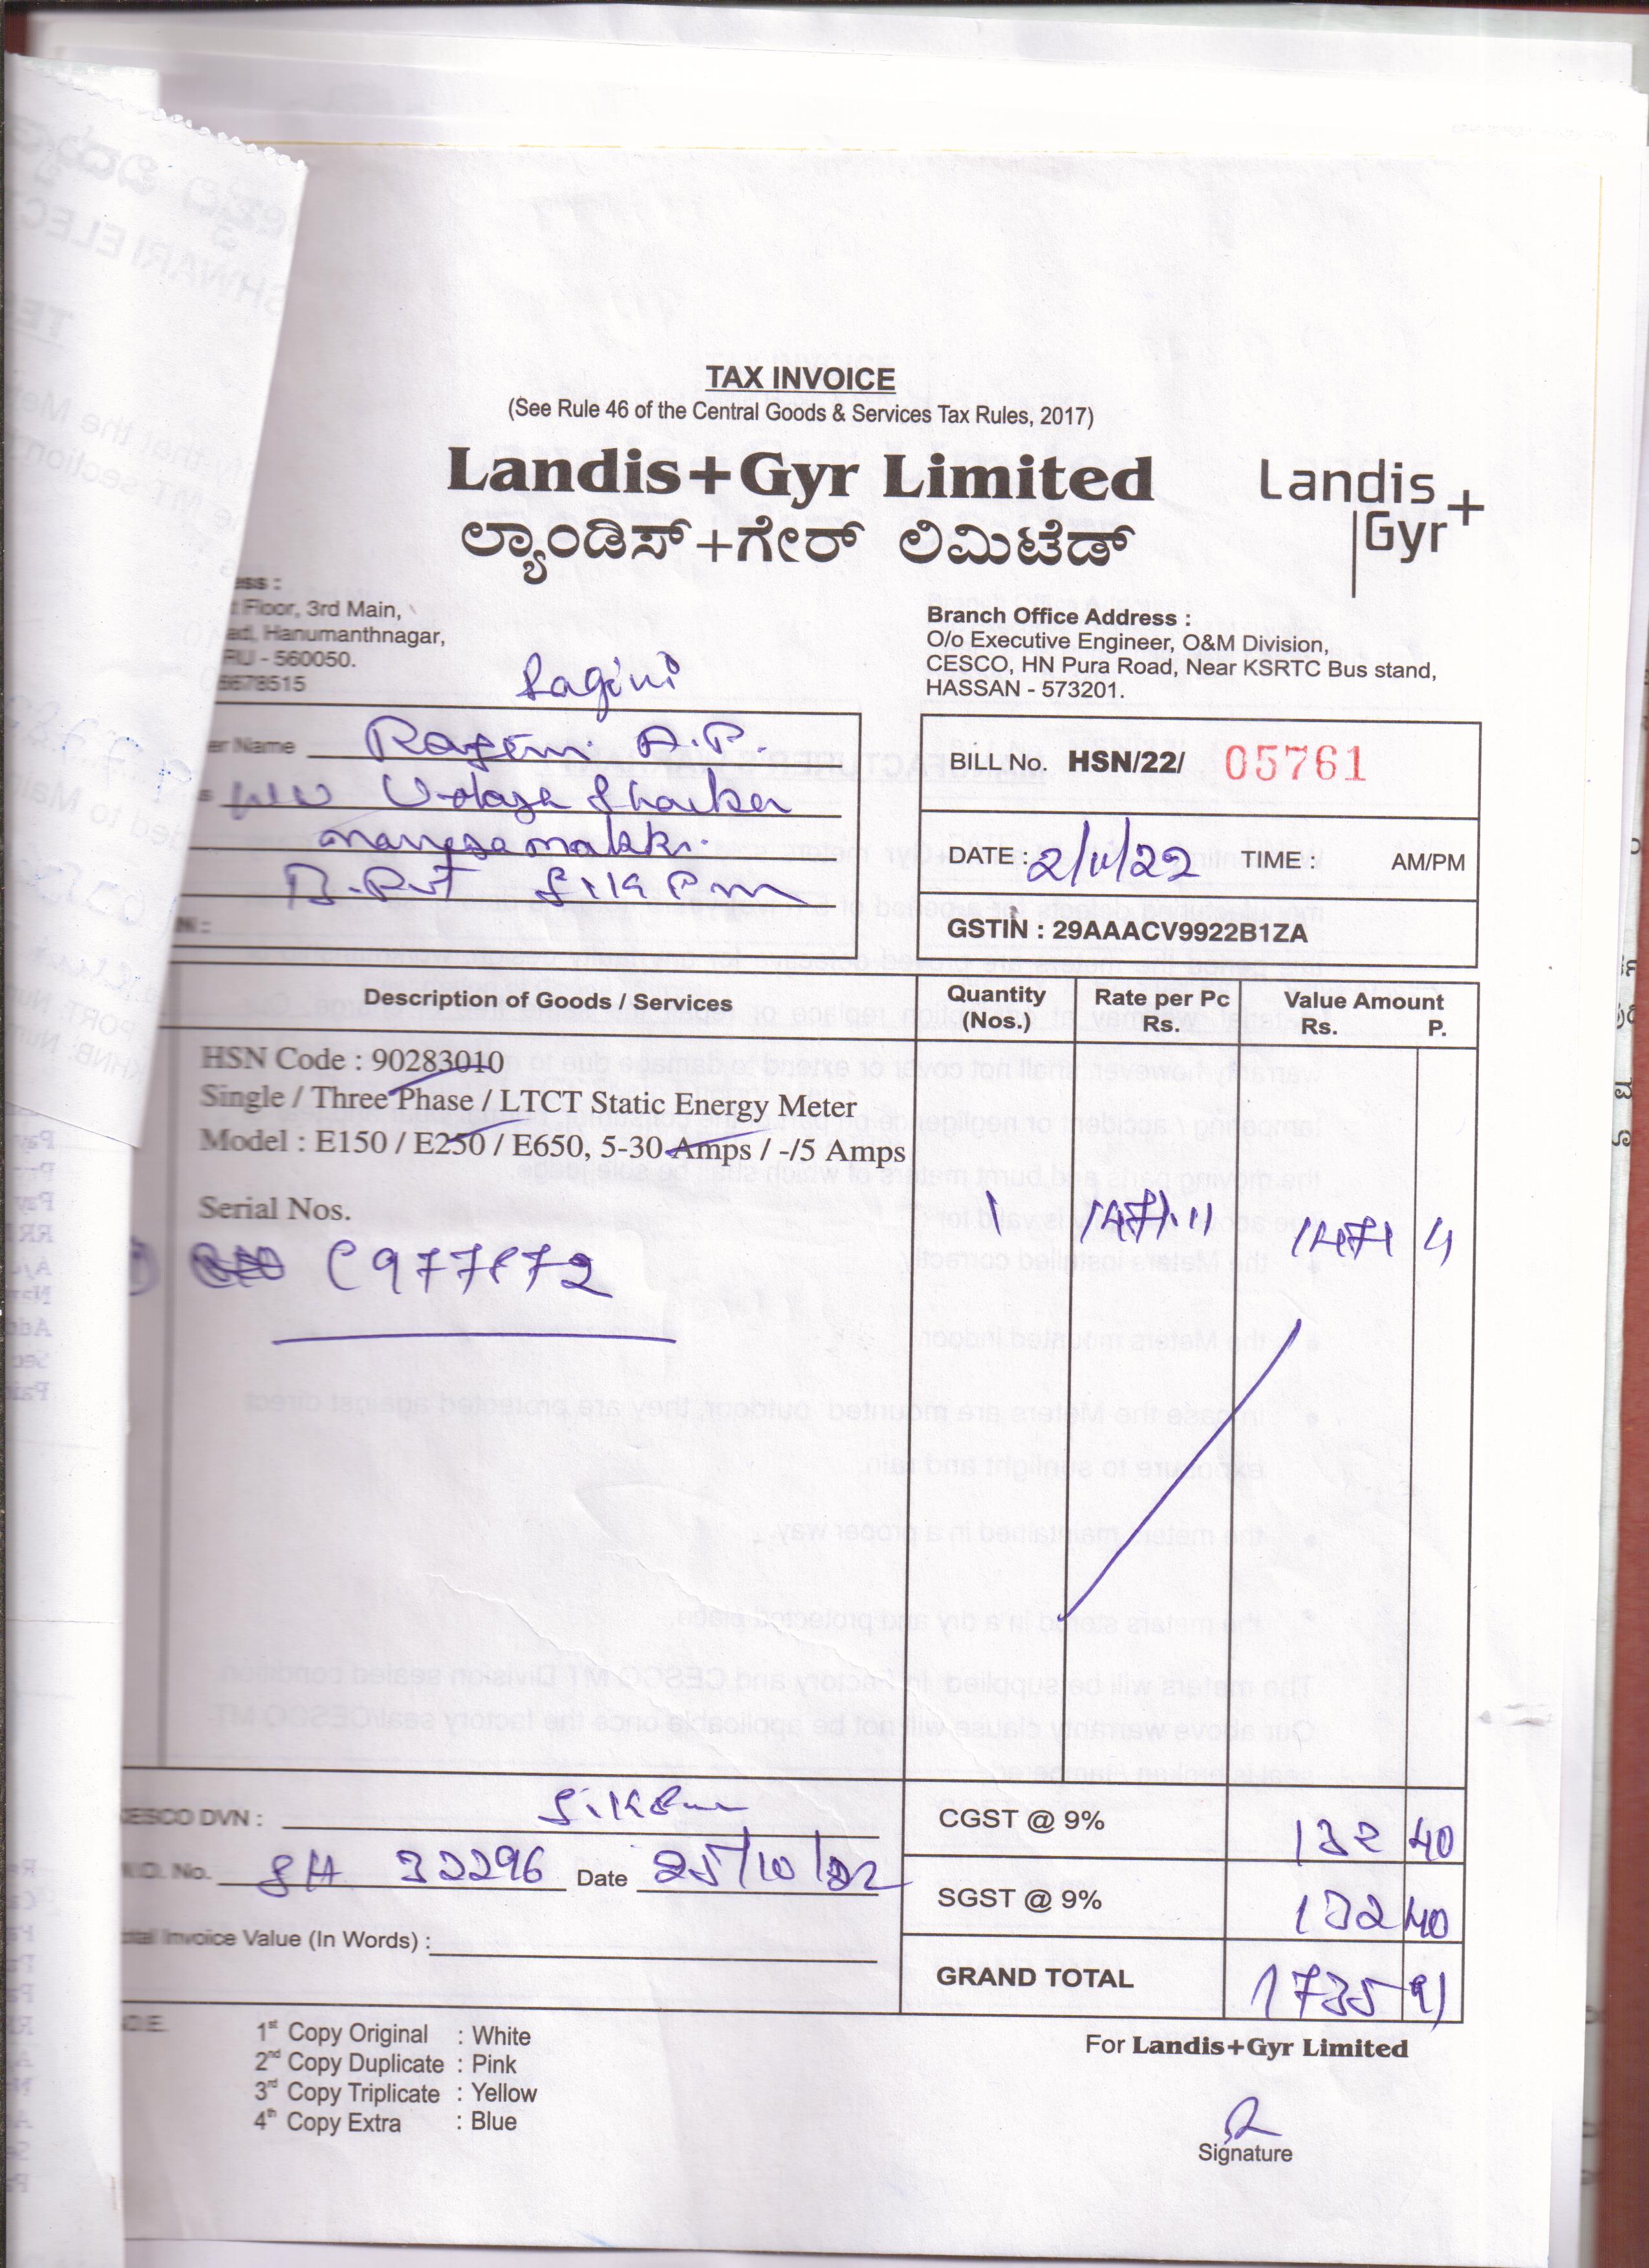 TAX INVOICE
(See Rule 46 of the Central Goods & Services Tax Rules, 2017)
Landis+Gyr Limited
ಲ್ಯಾಂಡಿಸ್+ಗೇರ್ ಲಿಮಿಟೆಡ್
Landis
Gyr+
ess :
Floor, 3rd Main,
ad, Hanumanthnagar,
RU - 560050.
8678515
Branch Office Address :
O/o Executive Engineer, O&M Division,
CESCO, HN Pura Road, Near KSRTC Bus stand,
HASSAN - 573201.
Ragini
er Name Ragini A.P.
Udaya Shanker
BILL No. HSN/22/ 05761
DATE : 2/11/22 TIME : AM/PM
GSTIN : 29AAACV9922B1ZA
Description of Goods / Services Quantity (Nos.) Rate per Pc Rs. Value Amount Rs. P.
HSN Code : 90283010
Single / Three Phase / LTCT Static Energy Meter
Model : E150 / E250 / E650, 5-30 Amps / -/5 Amps
Serial Nos.
1 1471.11 1471 11
C977872
CESCO DVN :
W.O. No. 32296 Date 25/10/22
Total Invoice Value (In Words) :
CGST @ 9% 132 40
SGST @ 9% 132 40
GRAND TOTAL 1735 91
1st Copy Original : White
2nd Copy Duplicate : Pink
3rd Copy Triplicate : Yellow
4th Copy Extra : Blue
For Landis+Gyr Limited
Signature